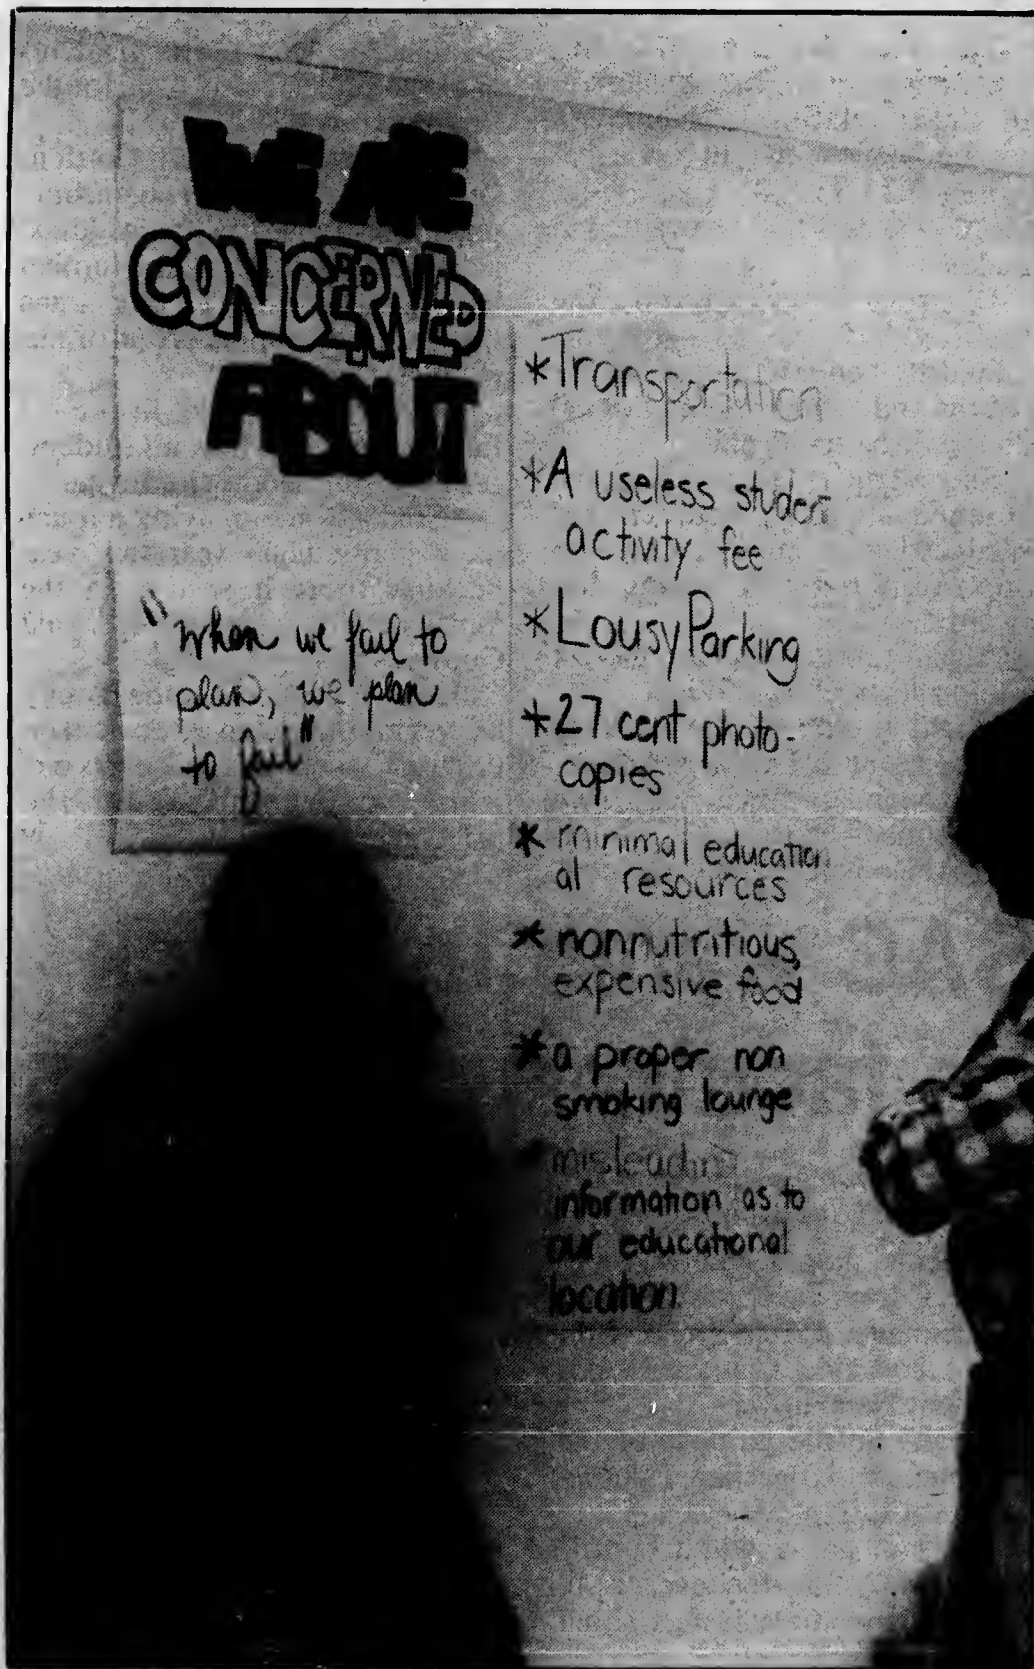 WE ARE
CONCERNED
ABOUT
"when we fail to
plan, we plan
to fail"
*Transportation
*A useless student
activity fee
*Lousy Parking
*27 cent photo-
copies
* minimal education
al resources
* nonnutritious,
expensive food
* a proper non
smoking lounge
* misleading
information as to
our educational
location